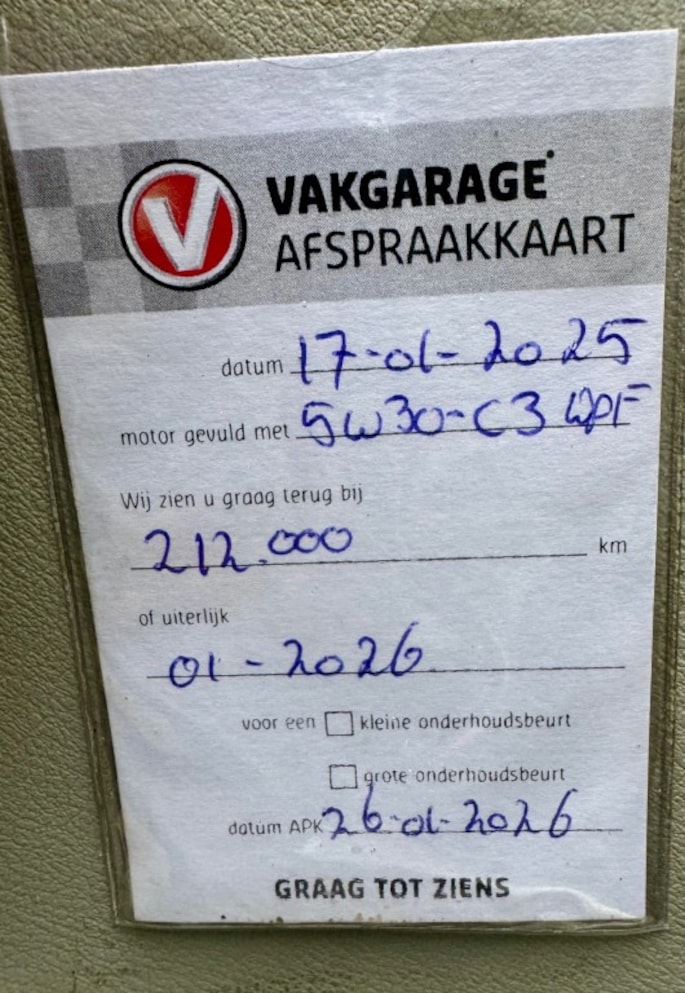 V VAKGARAGE
AFSPRAAKKAART
datum 17-01-2025
motor gevuld met 5W30-C3 WPF
Wij zien u graag terug bij
212.000 km
of uiterlijk
01-2026
voor een kleine onderhoudsbeurt
grote onderhoudsbeurt
datum APK 26-01-2026
GRAAG TOT ZIENS